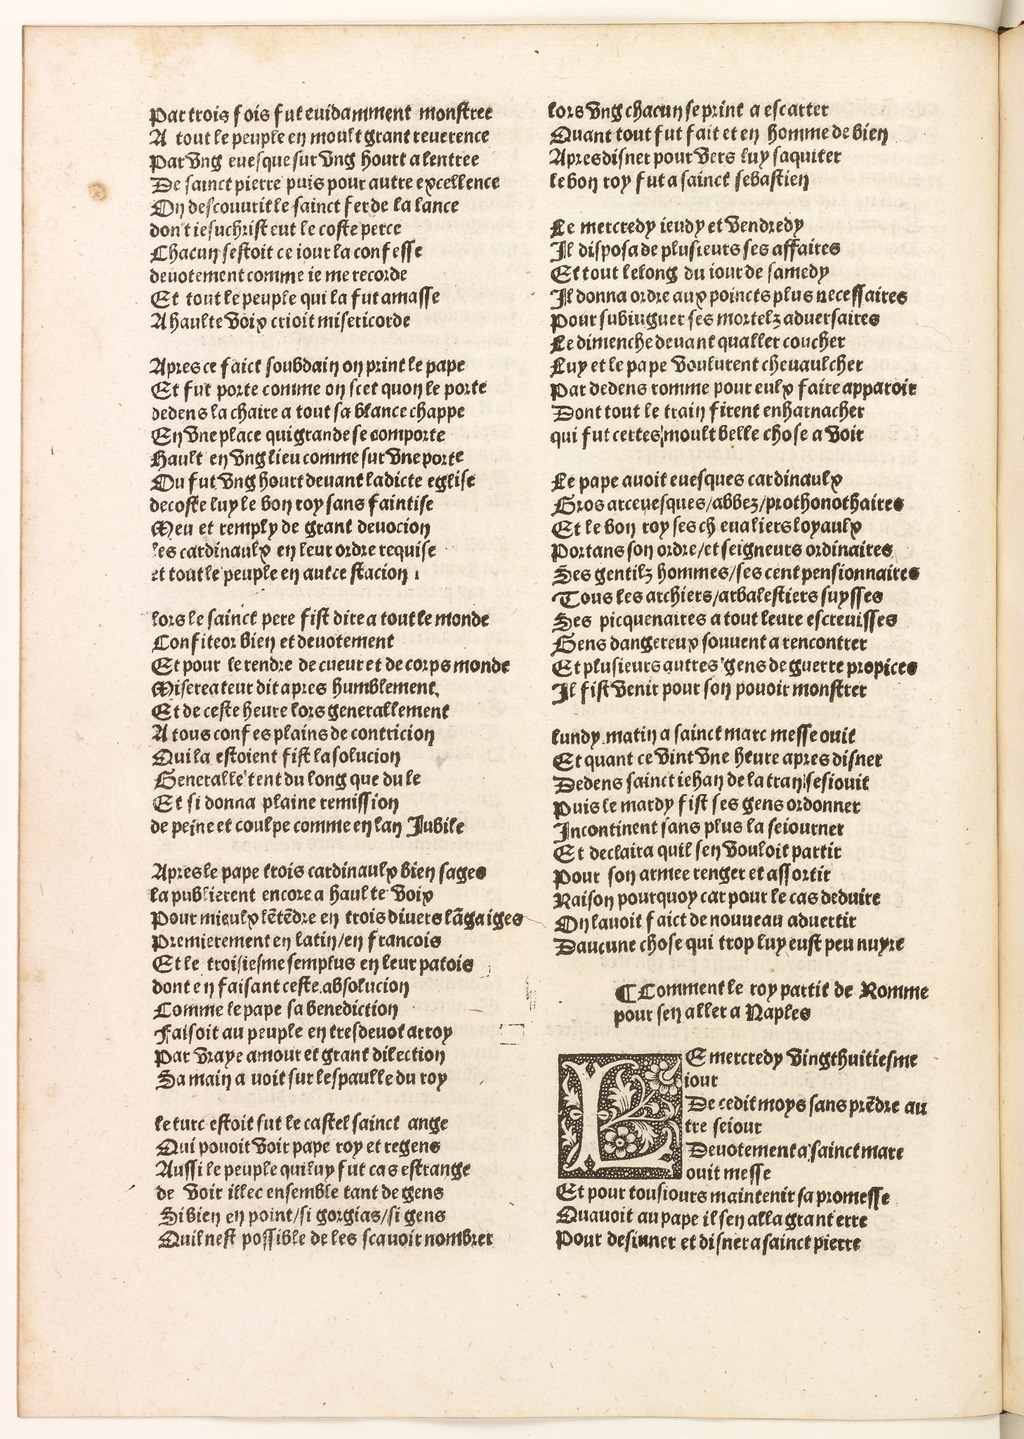 Par trois fois fut euidamment monstree
A tout le peuple en moult grant reuerence
Par vng euesque sur vng hourt a lentree
De sainct pierre puis pour autre excellence
On descouurit le sainct fer de la lance
dont iesuchrist eut le coste perce
Chacun sestoit ce iour la confesse
deuotement comme ie me recorde
Et tout le peuple qui la fut amasse
A haulte voix crioit misericorde
Apres ce faict soubdain on print le pape
Et fut porte comme on scet quon le porte
dedens la chaire a tout sa blance chappe
En vne place qui grande se comporte
Hault en vng lieu comme sur vne porte
Ou fut vng hourt deuant ladicte eglise
decoste luy le bon roy sans faintise
Meu et remply de grant deuocion
les cardinaulx en leur ordre requise
et tout le peuple en autre stacion
lors le sainct pere fist dire a tout le monde
Confiteor bien et deuotement
Et pour le rendre de cueur et de corps monde
Misereatur dit apres humblement
Et de ceste heure lors generallement
A tous confes plains de contricion
Qui la estoient fist lasolucion
Generallement du long que du le
Et si donna plaine remission
de peine et coulpe comme en lan Jubile
Apres le pape trois cardinaulx bien sages
la publierent encore a haulte voix
Pour mieulx lētēdre en trois diuers lāgaiges
Premierement en latin/en francois
Et le troisiesme semplus en leur patois
dont en faisant ceste absolucion
Comme le pape sa benediction
Faisoit au peuple en tresdeuot arroy
Par vraye amour et grant dilection
Sa main auoit sur lespaulle du roy
le turc estoit fut le castel sainct ange
Qui pouoit voir pape roy et regens
Aussi le peuple qui luy fut cas estrange
de voir illec ensemble tant de gens
Si bien en point/si gorgias/si gens
Quil nest possible de les scauoir nombrer
lors vng chacun se print a escarter
Quant tout fut fait et en homme de bien
Apres disner pour vers luy saquiter
le bon roy fut a sainct sebastien
Le mercredy ieudy et vendredy
Il disposa de plusieurs ses affaires
Et tout le long du iour de samedy
Il donna ordre aux poincts plus necessaires
Pour subiuguer ses mortelz aduersaires
Le dimenche deuant qualler coucher
Luy et le pape voulurent cheuaulcher
Par dedens romme pour eulx faire apparoir
Dont tout le train firent enharnacher
qui fut certes moult belle chose a voir
Le pape auoit euesques cardinaulx
Gros arceuesques/abbez/prothonothaires
Et le bon roy ses cheualiers loyaulx
Portans son ordre/et seigneurs ordinaires
Ses gentilz hommes/ses cent pensionnaires
Tous les archiers/arbalestiers suysses
Ses picquenaires a tout leurs escreuisses
Gens dangereux souuent a rencontrer
Et plusieurs autres gens de guerre propices
Il fist venir pour son pouoir monstrer
lundy matin a sainct marc messe ouit
Et quant ce vint vne heure apres disner
Dedens sainct iehan de latran sesiouit
Puis le mardy fist ses gens ordonner
Incontinent sans plus la seiourner
Et declaira quil sen vouloit partir
Pour son armee renger et assortir
Raison pourquoy car pour le cas deduire
On lauoit faict de nouueau aduertir
Daucune chose qui trop luy eust peu nuyre
¶ Comment le roy partit de Romme
pour sen aller a Naples
LE mercredy vingthuitiesme
iour
De cedit moys sans prēdre au
tre seiour
Deuotement a sainct marc
ouit messe
Et pour tousiours maintenir sa promesse
Quauoit au pape il sen alla grant erre
Pour desiuner et disner a sainct pierre